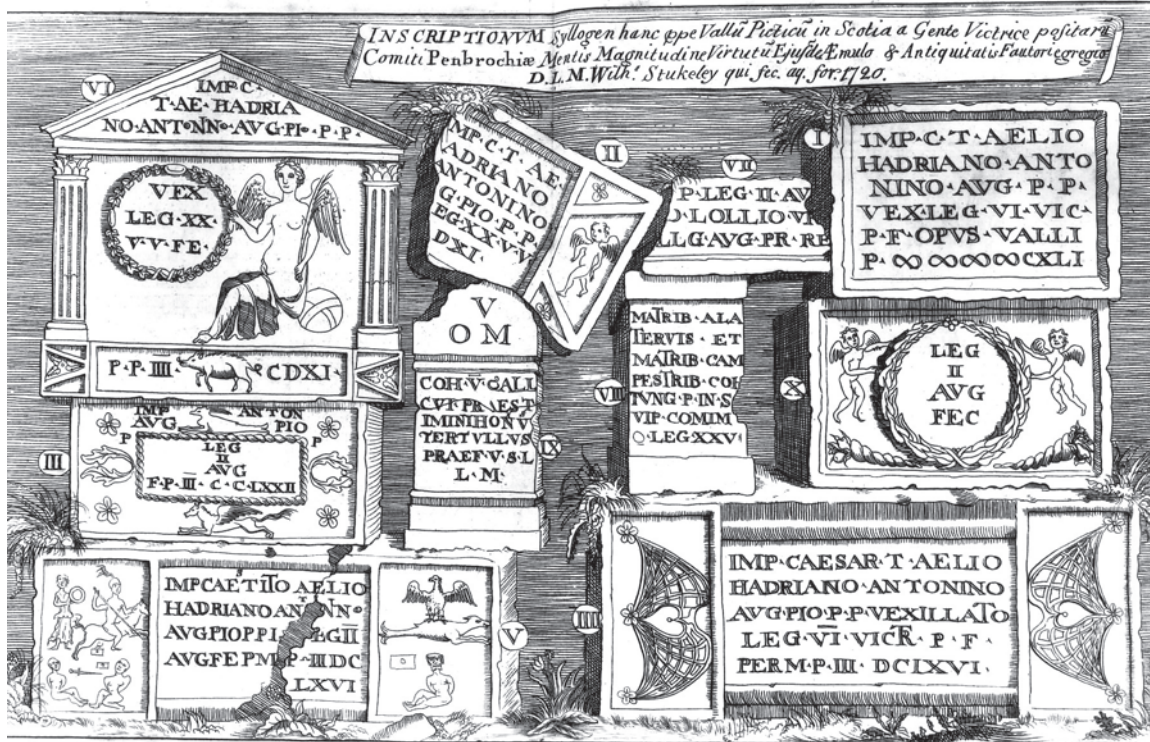 INSCRIPTIONVM Syllogen hanc ꝓpe Vallũ Picticũ in Scotia a Gente Victrice positarũ
Comiti Penbrochiæ Mentis Magnitudine Virtutũ Ejusdẽ Æmulo & Antiquitatis Fautori egregio
D. L. M. Wilhs. Stukeley qui fec. aq. for. 1720.
VI
IMP·C·
T·AE·HADRIA
NO·ANTONINO·AVG·PIO·P·P·
VEX
LEG·XX·
V·V·FE·
P·P·IIII· CDXI·
II
MP·C·T·AE·
ADRIANO
ANTONINO
G·PIO·P·P·
EG·XX·V·V
DXI·
VII
P·LEG·II·AV
LOLLIO·V
LLG·AVG·PR·RE
I
IMP·C·T·AELIO
HADRIANO·ANTO
NINO·AVG·P·P·
VEX·LEG·VI·VIC·
P·F·OPVS·VALLI
P·∞∞∞∞CXLI
III
IMP ANTON
AVG PIO
P P
LEG
II
AVG
F·P·III·C·C·LXXII
IX
V
OM
COH·V̄·GALL
CVI·PRAEST
IMINIHONV
TERTVLLVS
PRAEF·V·S·L
L·M·
VIII
MATRIB·ALA
TERVIS·ET
MATRIB·CAM
PESTRIB·COH
TVNG·P·IN·S
VIP·COMIM
LEG·XXV
X
LEG
II
AVG
FEC
V
S
IMPCAETITO AELIO
HADRIANO ANTONINO
AVGPIOPPLEGII
AVGFEPMP·IIIDC
LXVI
IIII
IMP·CAESAR·T·AELIO
HADRIANO·ANTONINO
AVG·PIO·P·P·VEXILLATO
LEG·V̄Ī·VICR·P·F·
PER M·P·III·DCLXVI·